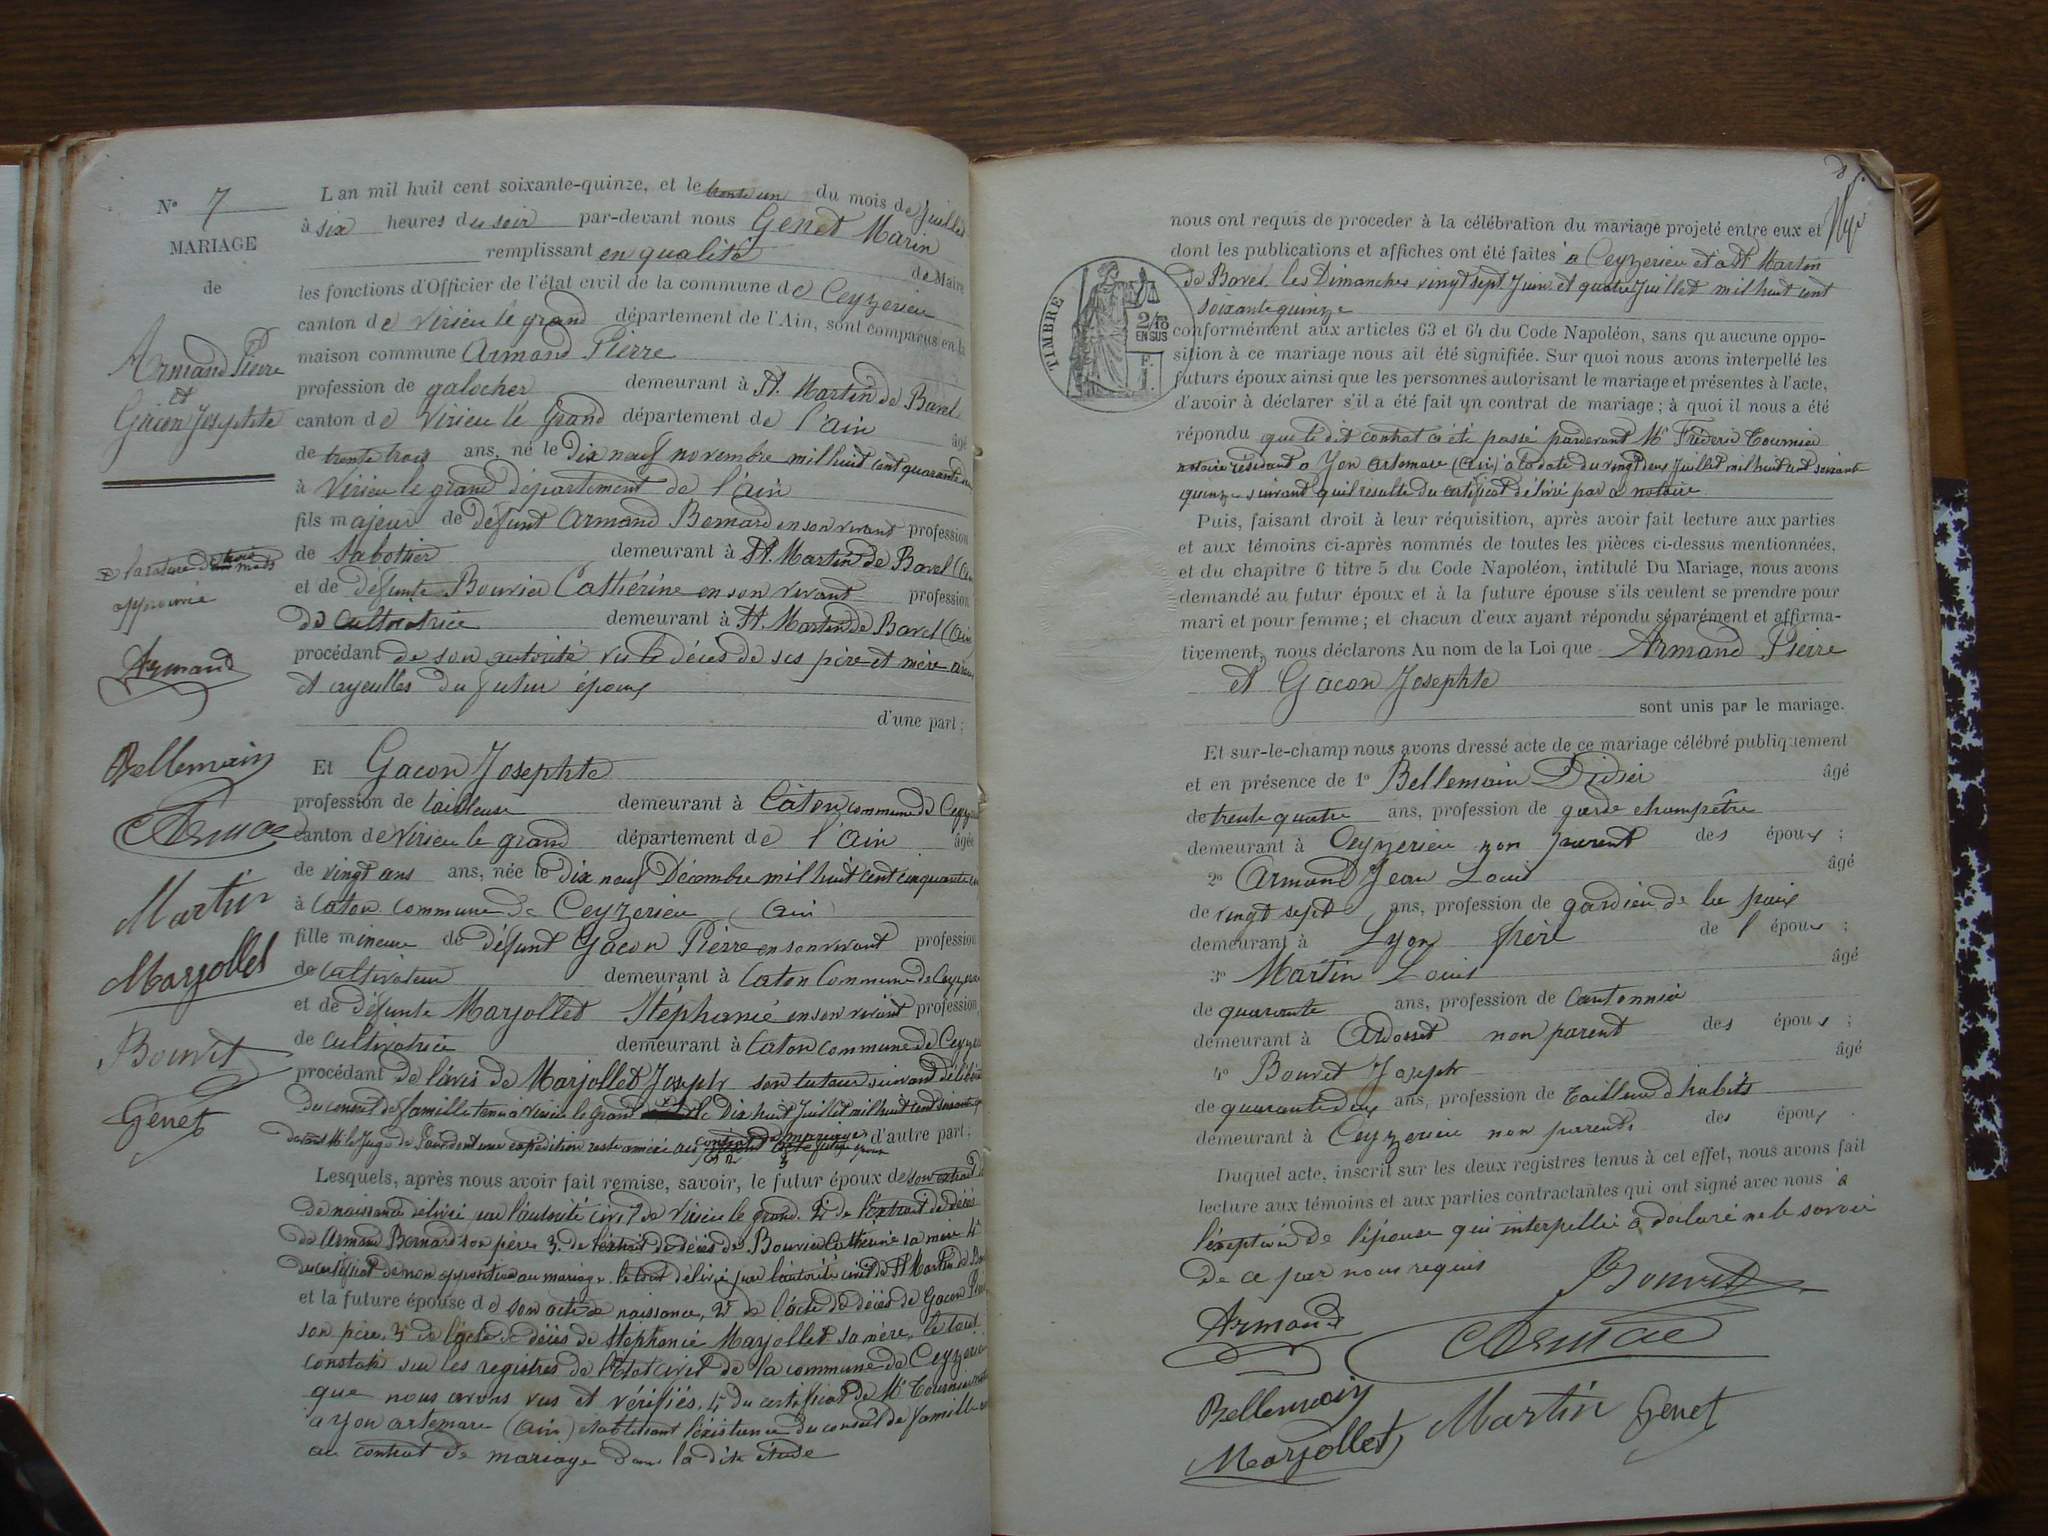 N° 7
MARIAGE
de
Armand Pierre
et
Gacon Josephte
L'an mil huit cent soixante-quinze, et le trente un du mois de Juillet
à six heures du soir par-devant nous Genet Marin
remplissant en qualité de Maire
les fonctions d'Officier de l'état civil de la commune de Ceyzerieu
canton de Virieu le grand département de l'Ain, sont comparus en la
maison commune Armand Pierre
profession de galocher demeurant à St. Martin de Bavel
canton de Virieu le Grand département de l'ain âgé
de trente trois ans, né le dix neuf novembre mil huit cent quarante un
à Virieu le grand département de l'ain
fils majeur de défunt Armand Bernard en son vivant profession
de sabotier demeurant à St. Martin de Bavel (Ain
et de défunte Bouvier Cathérine en son vivant profession
de cultivatrice demeurant à St. Martin de Bavel (Ain
procédant de son autorité vu le décès de ses père et mère
et ayeulles du futur époux
d'une part ;
Et Gacon Josephte
profession de tailleuse demeurant à Caton commune de Ceyzerieu
canton de Virieu le grand département de l'Ain âgée
de vingt ans ans, née le dix neuf Décembre mil huit cent cinquante
à Caton commune de Ceyzerieu (Ain)
fille mineure de défunt Gacon Pierre en son vivant profession
de cultivateur demeurant à Caton Commune de Ceyzerieu
et de défunte Marjollet Stéphanie en son vivant profession
de cultivatrice demeurant à Caton commune de Ceyzerieu
procédant de l'avis de Marjollet Joseph son tuteur suivant délibération
du conseil de famille tenu à Virieu le grand le Dix huit Juillet mil huit cent soixante
devant Mr le Juge de Paix dont une expédition reste annexée au contrat de mariage d'autre part ;
Lesquels, après nous avoir fait remise, savoir, le futur époux de son extrait
de naissance délivré par l'autorité civil de Virieu le grand. 2° de l'extrait de décès
de Armand Bernard son père 3° de l'extrait de décès de Bouvier Catherine sa mère 4°
du certificat de non opposition au mariage. le tout délivré par l'autorité civil de St Martin de Bavel
et la future épouse de son acte de naissance, 2° de l'acte de décès de Gacon Pierre
son père, 3° de l'acte de décès de Stéphanie Marjollet sa mère, le tout
constaté sur les registres de l'Etat civil de la commune de Ceyzerieu
que nous avons vus et vérifiés. 4° du certificat de Me Tournier
a Yon artemare (Ain) établissant l'existence du conseil de famille
au contrat de mariage dans la dite étude
la rature de trois mots
approuvée
Armand
Bellemain
Armand
Martin
Marjollet
Bouvet
Genet
nous ont requis de proceder à la célébration du mariage projeté entre eux et
dont les publications et affiches ont été faites à Ceyzerieu et à St Martin
de Bavel les Dimanches vingt sept Juin et quatre Juillet mil huit cent
soixante quinze
TIMBRE
2/10
EN SUS
conformément aux articles 63 et 64 du Code Napoléon, sans qu'aucune oppo-
sition à ce mariage nous ait été signifiée. Sur quoi nous avons interpellé les
futurs époux ainsi que les personnes autorisant le mariage et présentes à l'acte,
d'avoir à déclarer s'il a été fait un contrat de mariage ; à quoi il nous a été
répondu que le dit contrat a été passé pardevant Me Fréderic Tournier
notaire résidant a Yon artemare (Ain) à la date du vingt deux Juillet mil huit cent soixante
quinze suivant qu'il résulte du certificat délivré par ce notaire
Puis, faisant droit à leur réquisition, après avoir fait lecture aux parties
et aux témoins ci-après nommés de toutes les pièces ci-dessus mentionnées,
et du chapitre 6 titre 5 du Code Napoléon, intitulé Du Mariage, nous avons
demandé au futur époux et à la future épouse s'ils veulent se prendre pour
mari et pour femme ; et chacun d'eux ayant répondu séparément et affirma-
tivement, nous déclarons Au nom de la Loi que Armand Pierre
et Gacon Josephte
sont unis par le mariage.
Et sur-le-champ nous avons dressé acte de ce mariage célébré publiquement
et en présence de 1° Bellemain Didier âgé
de trente quatre ans, profession de garde champêtre
demeurant à Ceyzerieu non parent des époux ;
2° Armand Jean Louis âgé
de vingt sept ans, profession de gardien de la paix
demeurant à Lyon frère de l'époux ;
3° Martin Louis âgé
de quarante ans, profession de Cantonnier
demeurant à Ardosset non parent des époux ;
4° Bouvet Joseph âgé
de quarante deux ans, profession de Tailleur d'habits
demeurant à Ceyzerieu non parent des époux .
Duquel acte, inscrit sur les deux registres tenus à cet effet, nous avons fait
lecture aux témoins et aux parties contractantes qui ont signé avec nous à
l'éxeption de l'épouse qui interpellée a déclaré ne le savoir
de ce par nous requis
Bouvet
Armand
Armand
Bellemain
Martin Genet
Marjollet